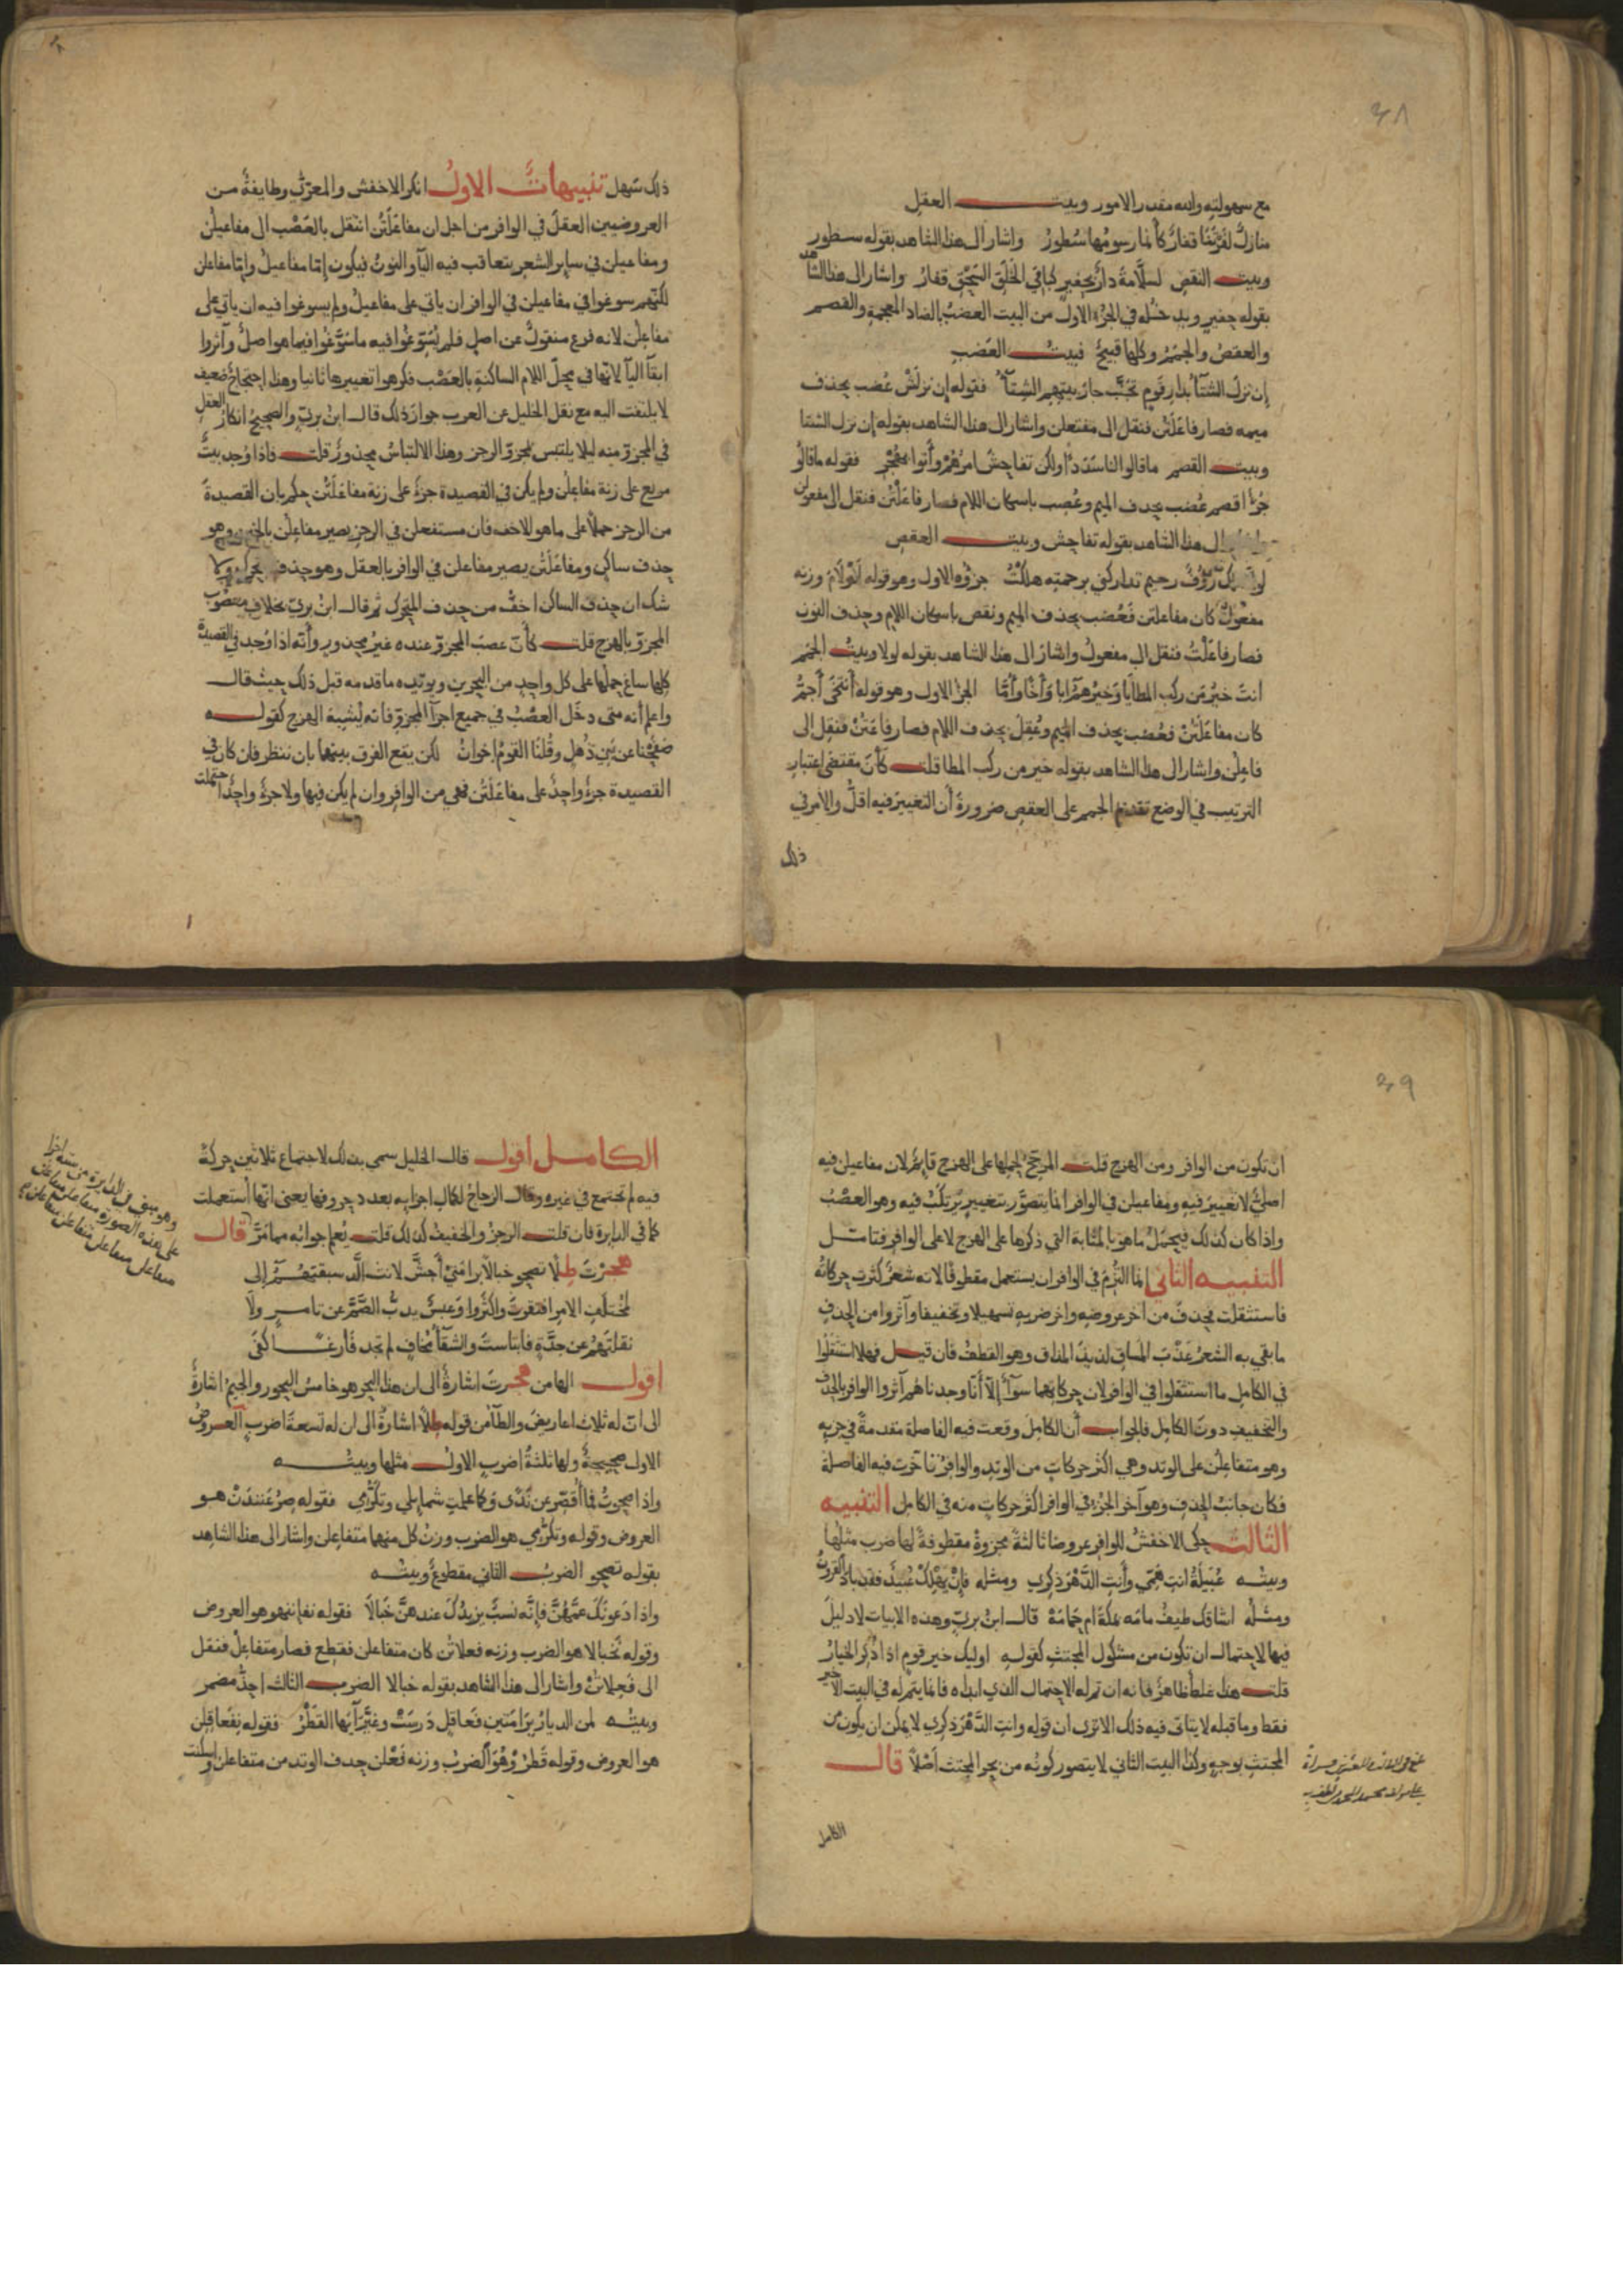 ٣٨
مع سهولته والله مقدر الامور وبيت العقل
منازل لفرتنا قفار كأنما رسومها سطور واشار الى هذا الشاهد بقوله سطور
وبيت النقص لسلامة دار بحفير كباقي الخلق السحق قفار واشار الى هذا الشاهد
بقوله حفير ويدخله في الجزء الاول من البيت العضب بالضاد المعجمة والقصم
والعقص والجمم وكلها قبيح فبيت العضب
إن نزل الشتآ بدار قوم تجنب جار بيتهم الشتآ فقوله إن نزلش عضب بحذف
ميمه فصار فاعلتن فنقل الى مفتعلن واشار الى هذا الشاهد بقوله إن نزل الشتا
وبيت القصم ماقالوا لنا سددا ولكن تفاحش امرهم وأتوا بهجر فقوله ماقالو
جزا اقصم عضب بحذف الميم وعصب باسكان اللام فصار فاعلتن فنقل الى مفعولن
الى هذا الشاهد بقوله تفاحش وبيت العقص
لولا ملك رؤف رحيم تداركني برحمته هلكت جزؤه الاول وهو قوله لولام وزنه
مفعول كان مفاعلتن فعضب بحذف الميم ونقص باسكان اللام وحذف النون
فصار فاعلت فنقل الى مفعول واشار الى هذا الشاهد بقوله لولا وبيت الجمم
انت خير من ركب المطايا وخيرهم ابا وأخا وأما الجزء الاول وهو قوله أنتخي أجم
كان مفاعلتن فعضب بحذف الميم وعقل بحذف اللام فصار فاعتن فنقل الى
فاعلن واشار الى هذا الشاهد بقوله خير من ركب المطا قلت كأن مقتضى اعتبار
الترتيب في الوضع تقديم الجمم على العقص ضرورة أن التغيير فيه اقل والامر في
ذلك
ذلك سهل تنبيهات الاول انكر الاخفش والمعري وطايفة من
العروضيين العقل في الوافر من اجل ان مفاعلتن انتقل بالعصب الى مفاعيلن
ومفاعيلن في ساير الشعر يتعاقب فيه اليآ والنون فيكون إما مفاعيل وإما مفاعلن
لكنهم سوغوا في مفاعيلن في الوافر ان ياتي على مفاعيل ولم يسوغوا فيه ان ياتي على
مفاعلن لانه فرع منقول عن اصل فلم يسوغوا فيه ماسوغوا فيما هو اصل وآثروا
ابقآ اليآ لانها في محل اللام الساكنة بالعصب فكرهوا تغييرها ثانيا وهذا احتجاج ضعيف
لا يلتفت اليه مع نقل الخليل عن العرب جواز ذلك قال ابن بري والصحيح انكار العقل
في المجزو منه ليلا يلتبس بمجزو الرجز وهذا الالتباس محذور قلت فاذا وجد بيت
مربع على زنة مفاعلن ولم يكن في القصيدة جزء على زنة مفاعلتن حكم بان القصيدة
من الرجز حملا على ماهو الاخف فان مستفعلن في الرجز يصير مفاعلن بالخبن وهو
حذف ساكن ومفاعلتن يصير مفاعلن في الوافر بالعقل وهو حذف متحرك ولا
شك ان حذف الساكن اخف من حذف المتحرك ثم قال ابن بري بخلاف معصوب
المجزو بالهزج قلت كأن عصب المجزو عنده غير محذور وأنه اذا وجد في القصيدة
كلها ساغ حملها على كل واحد من البحرين ويويده ماقدمه قبل ذلك حيث قال
واعلم أنه متى دخل العصب في جميع اجزآ المجزو فانه يشبه الهزج كقوله
صفحنا عن بني ذهل وقلنا القوم إخوان لكن يقع الفرق بينهما بان ننظر فان كان في
القصيدة جزء واحد على مفاعلتن فهي من الوافر وان لم يكن فيها ولا جزء واحد احتملت
٣٩
ان تكون من الوافر ومن الهزج قلت المرجح لحملها على الهزج قايم لان مفاعيلن فيه
اصلي لا تغيير فيه ومفاعيلن في الوافر انما يتصور بتغيير يرتكب فيه وهو العصب
واذا كان كذلك فيحمل ماهو بالمثابة التي ذكرها على الهزج لا على الوافر فتامل
التنبيه الثاني إنما التزم في الوافر ان يستعمل مقطوفا لانه شعر كثرت حركاته
فاستثقلت فحذف من اخر عروضه واخر ضربه تسهيلا وتخفيفا وآثروا من الحذف
ما بقي به الشعر عذب المساق لذيذ المذاق وهو القطف فان قيل فهلا استثقلوا
في الكامل ما استثقلوا في الوافر لان حركاتهما سوآء إلا أنا وجدناهم آثروا الوافر بالحذف
والتخفيف دون الكامل فالجواب أن الكامل وقعت فيه الفاصلة مقدمة في جزيه
وهو متفاعلن على الوتد وهي اكثر حركات من الوتد والوافر تاخرت فيه الفاصلة
فكان جانب الحذف وهو آخر الجزء في الوافر اكثر حركات منه في الكامل التنبيه
الثالث حكى الاخفش للوافر عروضا ثالثة مجزوة مقطوفة لها ضرب مثلها
وبيته عبيلة انت همي وأنت الدهر ذكري ومثله فإن يهلك عبيد فقد باد القرون
ومثله اشاقك طيف مامه بمكة ام حمامه قال ابن بري وهذه الابيات لا دليل
فيها لاحتمال ان تكون من مشكول المجتث كقوله اوليك خير قوم اذا ذكر الخيار
قلت هذا غلط ظاهر فانه ان تم له الاحتمال الذي ابداه فانما يتم له في البيت الاخير
فقط وما قبله لا يتاتى فيه ذلك الا ترى ان قوله وانت الدهر ذكري لا يمكن ان يكون من
المجتث بوجه وكذا البيت الثاني لا يتصور كونه من بحر المجتث أصلا قال
الكامل
الكامل اقول قال الخليل سمي بذلك لاجتماع ثلاثين حركة
فيه لم تجتمع في غيره وقال الزجاج لكمال اجزايه بعدد حروفها يعني انها استعملت
كما في الدايرة فان قلت الرجز والخفيف كذلك قلت يعلم جوابه مما مر قال
هجرت طلا تصحو خبالا برامتي أجش لانت الذ سبقتهم إلى
لمختلف الامر افتقرت واكثروا وعبس يذب الصم عن تامر ولا
نقلتهم عن حدة فابتاست والشقآ مخاف لم تجد فارغا كفى
اقول الها من هجرت اشارة الى ان هذا البحر هو خامس البحور والجيم اشارة
الى ان له ثلاث اعاريض والطآ من قوله طلا اشارة الى ان له تسعة اضرب العروض
الاولى صحيحة ولها ثلثة اضرب الاول مثلها وبيته
واذا صحوت فما أقصر عن ندى وكما علمت شمايلي وتكرمي فقوله صرعنندن هو
العروض وقوله وتكرمي هو الضرب وزن كل منهما متفاعلن واشار الى هذا الشاهد
بقوله تصحو الضرب الثاني مقطوع وبيته
واذا دعونك عمهن فإنه نسب يزيدك عندهن خبالا فقوله نفإننهو هو العروض
وقوله نخبالا هو الضرب وزنه فعلاتن كان متفاعلن فقطع فصار متفاعل فنقل
الى فعلاتن واشار الى هذا الشاهد بقوله خبالا الضرب الثالث احذ مضمر
وبيته لمن الديار برامتين فعاقل درست وغير آيها القطر فقوله نفعاقلن
هو العروض وقوله قطرو هو الضرب وزنه فعلن حذف الوتد من متفاعلن واسكنت
وهو مبني في الدايرة من ستة اجزا
على هذه الصورة متفاعلن متفاعلن
متفاعلن متفاعلن متفاعلن متفاعلن